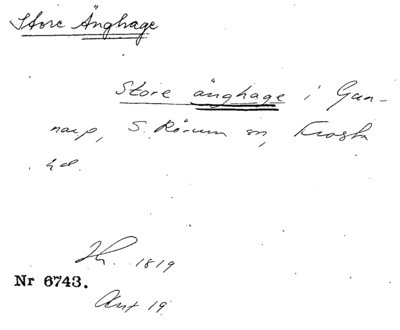 Store Änghage
Store änghage i Gun-
narp, S. Rörum sn, Frosta
hd.
1819
Nr 6743.
Akt 19